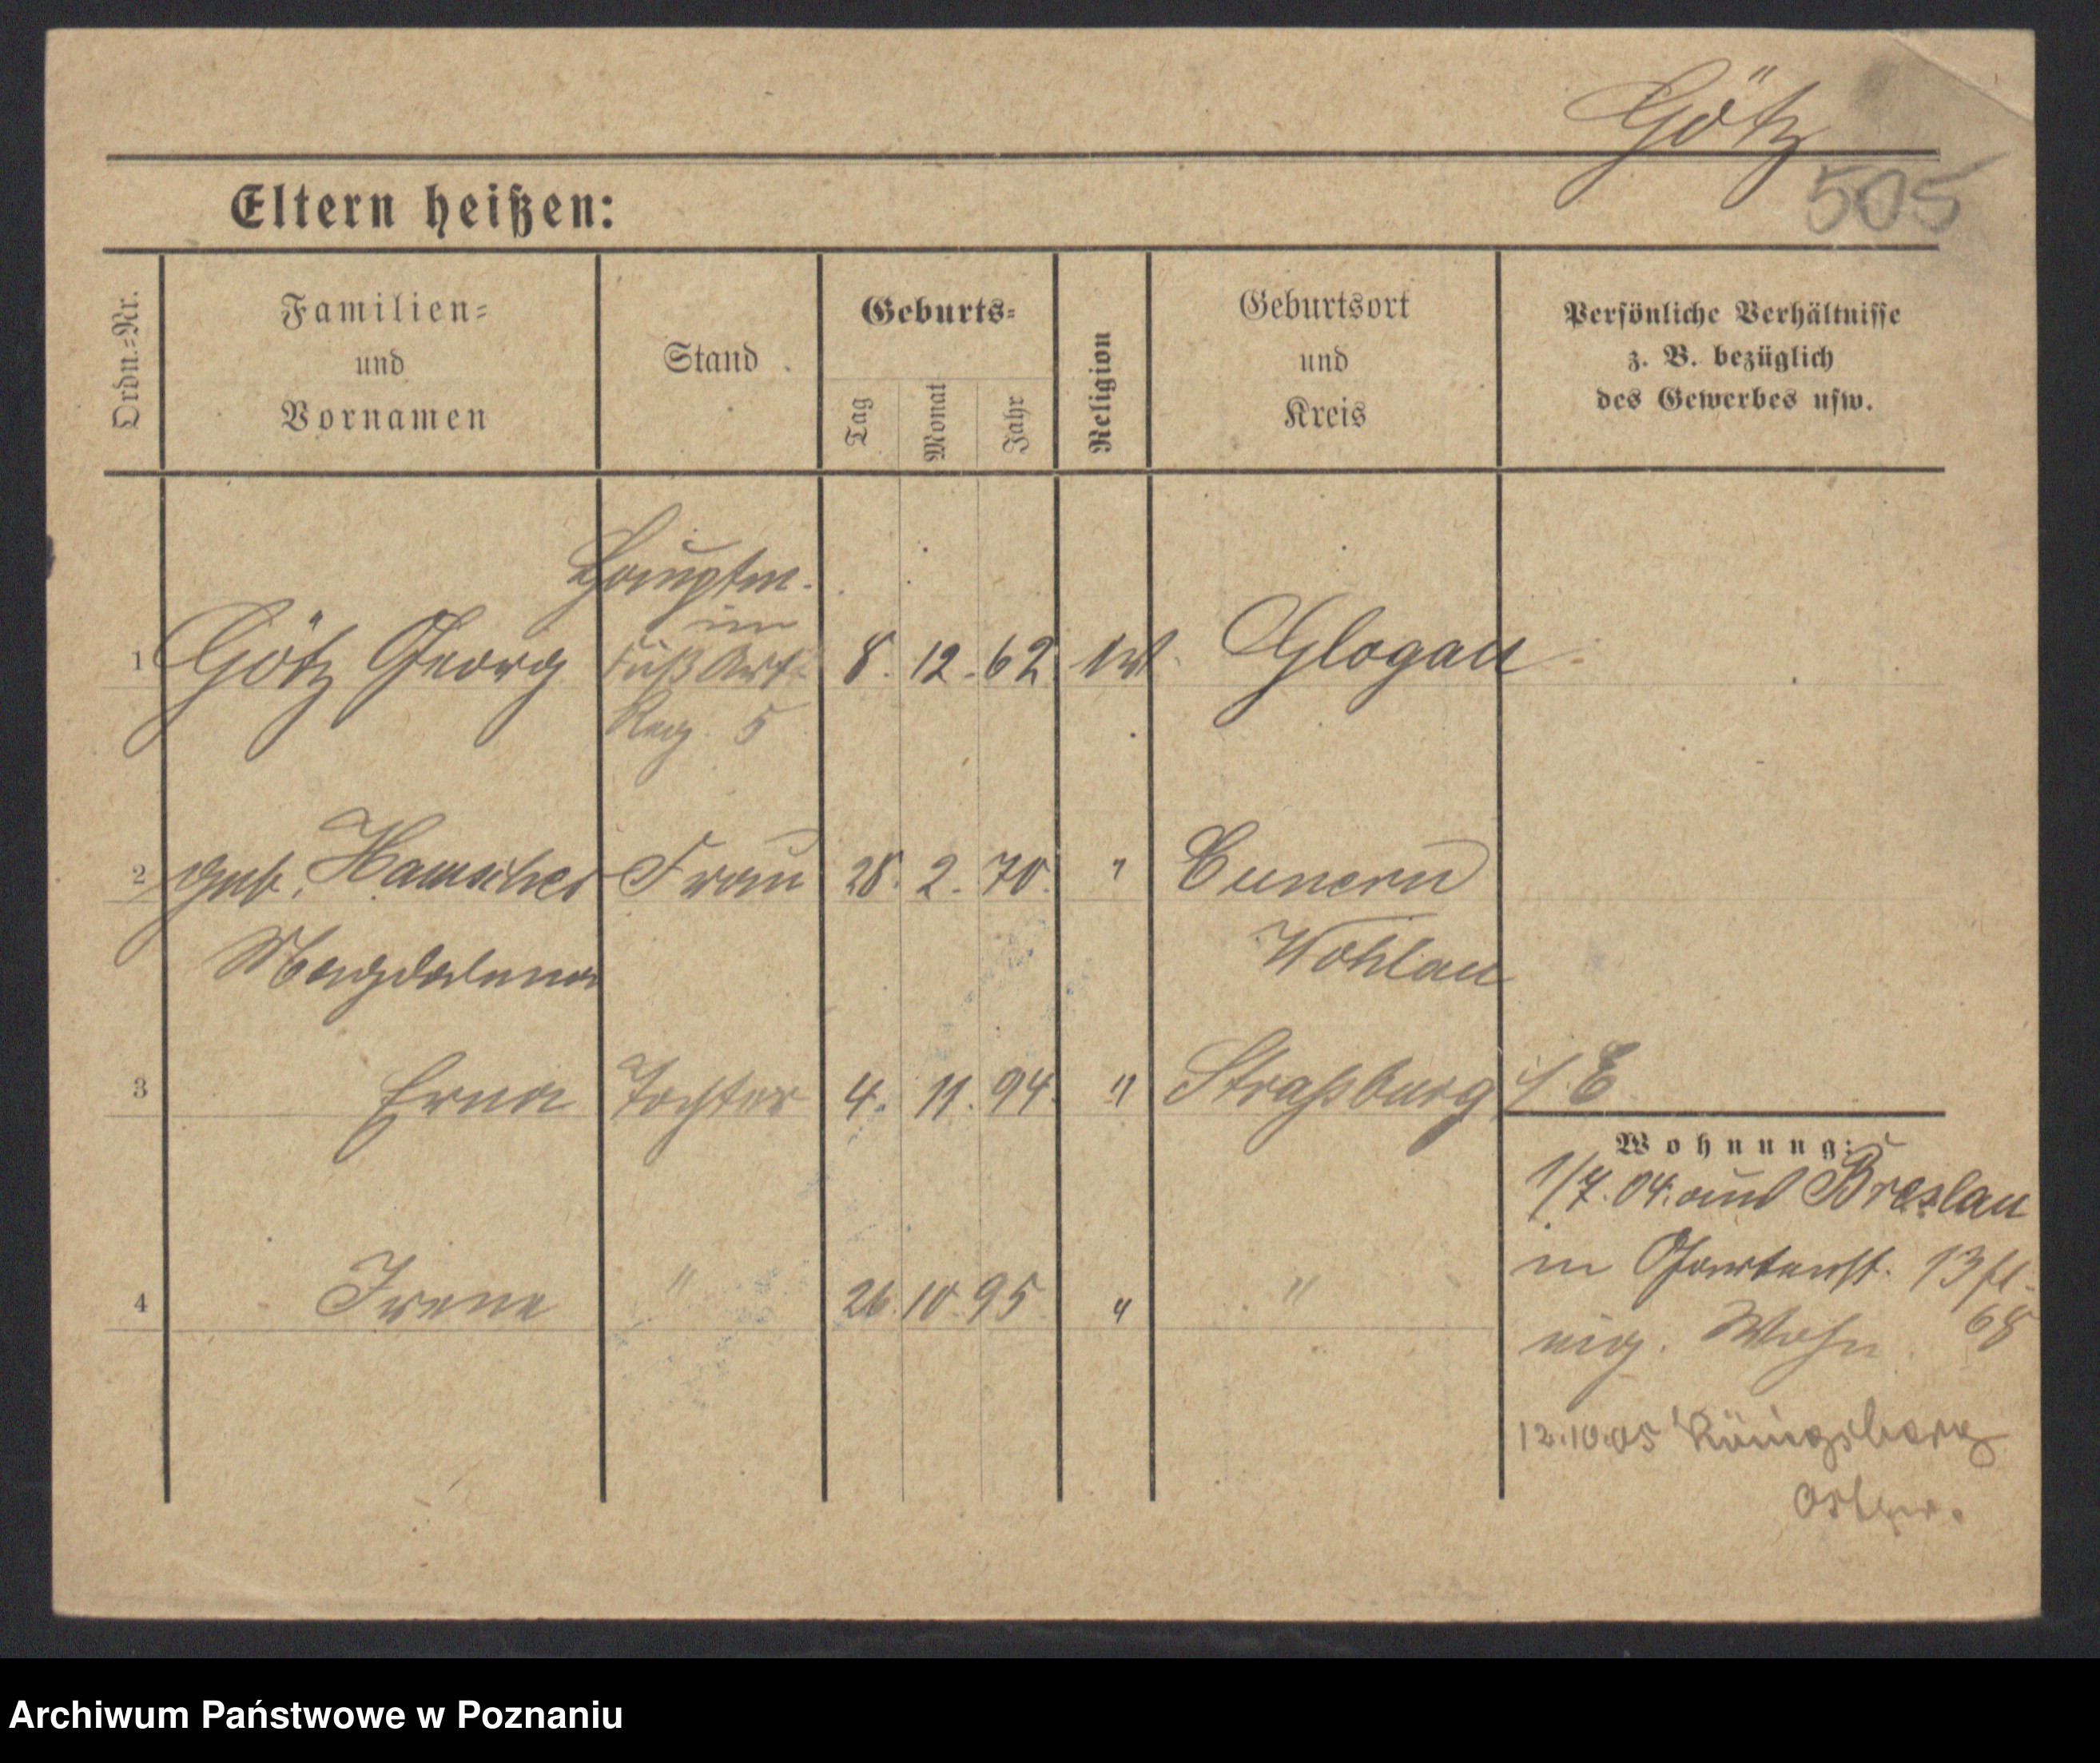 Götz
505
Eltern heißen:
Ordn.-Nr.
Familien-
und
Vornamen
Stand
Geburts-
Tag
Monat
Jahr
Religion
Geburtsort
und
Kreis
Persönliche Verhältnisse
z. B. bezüglich
des Gewerbes usw.
Hauptm.
im
1 Götz Georg Fuß Art. 8. 12. 62. Glogau
Reg. 5
2 geb. Frau 28. 2. 70. " Cunern
Magdalena Wohlau
3 Erna Tochter 4. 11. 94. " Straßburg i/E
Wohnung:
1/7. 04. aus Breslau
in Gartenst. 13
4 Irene " 26. 10. 95 " "
68
eig. Wohn
12.10.05 Königsberg
Ostpr.
Archiwum Państwowe w Poznaniu